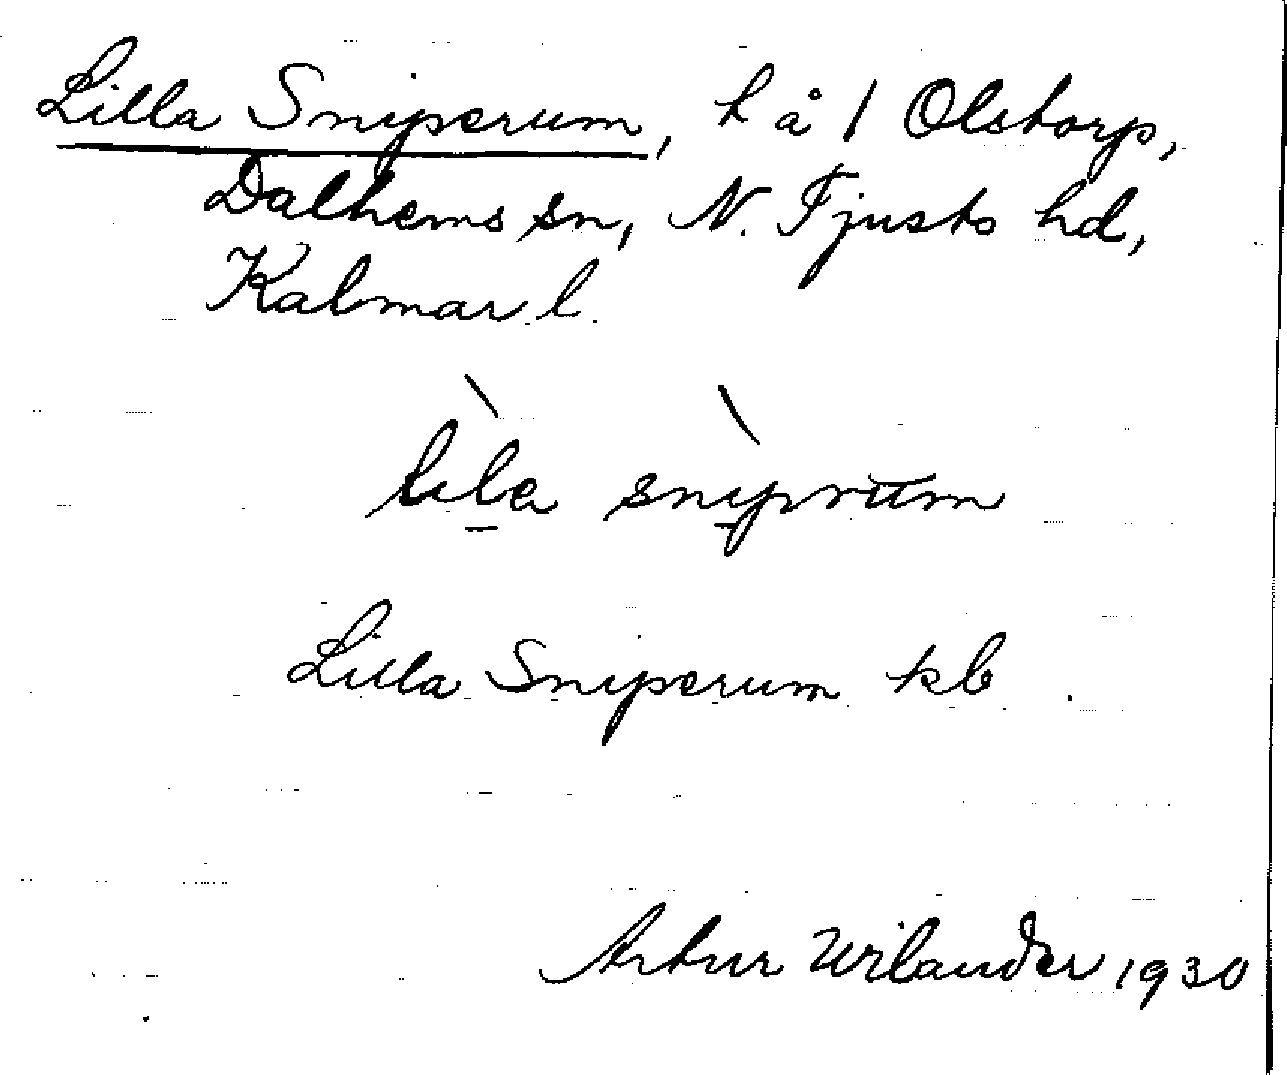 Lilla Sniperum, l å 1 Olstorp,
Dalhems sn, N. Tjusts hd,
Kalmar l.
lila sniprum
Lilla Sniperum kb
Artur Wilander 1930